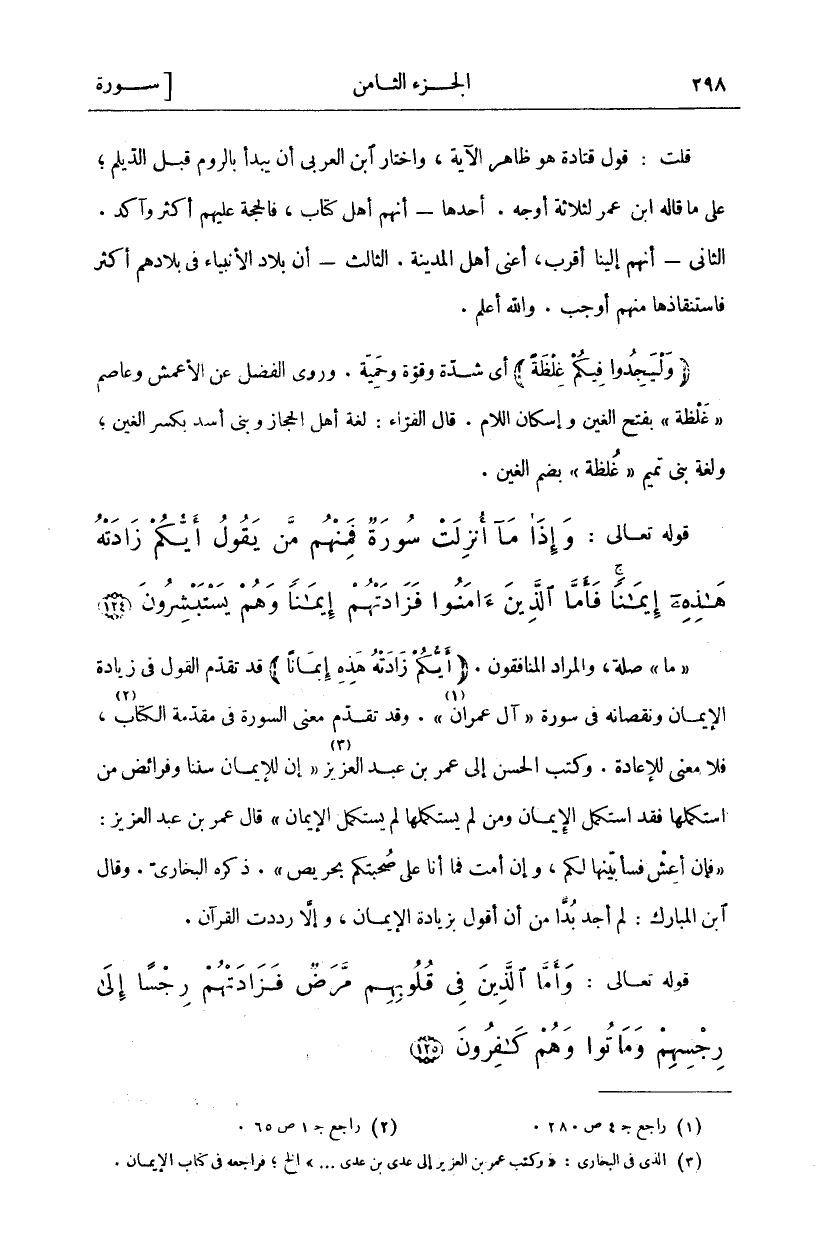 ٢٩٨ الجـــزء الثـامن [ ســـورة
قلت : قول قتادة هو ظاهر الآية ، واختار ٱبن العربى أن يبدأ بالروم قبـل الدّيلم ؛
على ما قاله ابن عمر لثلاثة أوجه . أحدها — أنهم أهل كتاب ، فالحجة عليهم أكثر وآكد .
الثانى — أنهم إلينا أقرب، أعنى أهل المدينة . الثالث — أن بلاد الأنبياء فى بلادهم أكثر
فاستنقاذها منهم أوجب . والله أعلم .
﴿ وَلْيَجِدُوا فِيكُمْ غِلْظَةً ﴾ أى شـدّة وقوّة وحَمِيّة . وروى الفضل عن الأعمش وعاصم
« غَلْظة » بفتح الغين وإسكان اللام . قال الفرّاء : لغة أهل الحجاز وبنى أسد بكسر الغين ؛
ولغة بنى تميم « غُلظة » بضم الغين .
قوله تعـالى : وَإِذَا مَآ أُنزِلَتْ سُورَةٌ فَمِنْهُم مَّن يَقُولُ أَيُّكُمْ زَادَتْهُ
هَـٰذِهِۦٓ إِيمَـٰنًا ۚ فَأَمَّا ٱلَّذِينَ ءَامَنُوا فَزَادَتْهُمْ إِيمَـٰنًا وَهُمْ يَسْتَبْشِرُونَ ﴿١٢٤﴾
« ما » صلة، والمراد المنافقون . ﴿ أَيُّكُمْ زَادَتْهُ هَذِهِ إِيمَانًا ﴾ قد تقدّم القول فى زيادة
الإيمـان ونقصانه فى سورة « آل عمران (١) » . وقد تقـدّم معنى السورة فى مقدّمة الكتاب (٢) ،
فلا معنى للإعادة . وكتب الحسن إلى عمر بن عبـد العزيز (٣) « إن للإيمـان سننا وفرائض من
استكملها فقد استكمل الإيمـان ومن لم يستكملها لم يستكمل الإيمان » قال عمر بن عبد العزيز :
«فإن أعِشْ فسأبيّنها لكم ، وإن أمت فما أنا على صُحبتكم بحريص» . ذكره البخارىّ . وقال
ٱبن المبارك : لم أجد بُدًّا من أن أقول بزيادة الإيمـان ، وإلّا رددت القرآن .
قوله تعـالى : وَأَمَّا ٱلَّذِينَ فِى قُلُوبِهِم مَّرَضٌ فَزَادَتْهُمْ رِجْسًا إِلَىٰ
رِجْسِهِمْ وَمَاتُوا وَهُمْ كَـٰفِرُونَ ﴿١٢٥﴾
(١) راجع جـ ٤ ص ٢٨٠ . (٢) راجع جـ ١ ص ٦٥ .
(٣) الذى فى البخارى : « وكتب عمر بن العزيز إلى عدى بن عدى ... » الخ ؛ فراجعه فى كتاب الإيمـان .